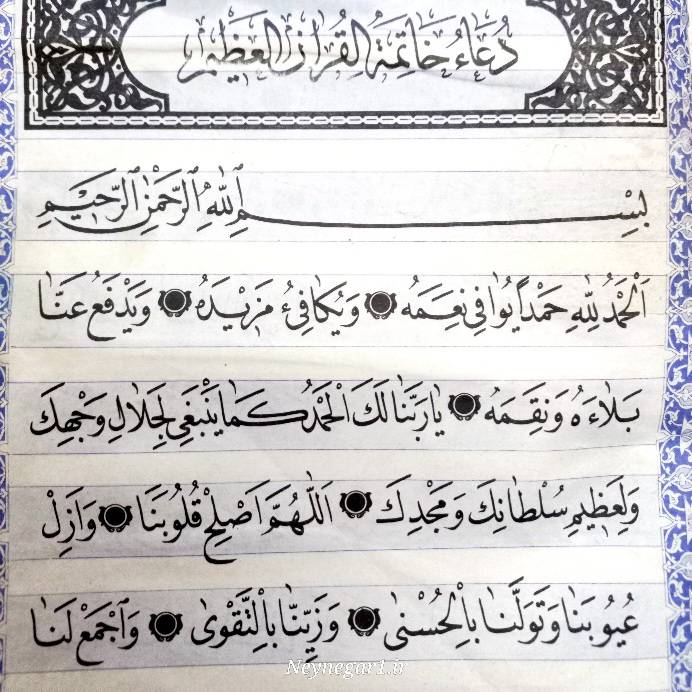 دُعَاءُ خَاتِمَةِ الْقُرْآنِ الْعَظِيمِ
بِسْمِ اللهِ الرَّحْمٰنِ الرَّحِيمِ
اَلْحَمْدُ لِلّٰهِ حَمْدًا يُوَافِي نِعَمَهُ ۞ وَيُكَافِئُ مَزِيْدَهُ ۞ وَيَدْفَعُ عَنَّا
بَلَاءَهُ وَنِقَمَهُ ۞ يَا رَبَّنَا لَكَ الْحَمْدُ كَمَا يَنْبَغِي لِجَلَالِ وَجْهِكَ
وَلِعَظِيمِ سُلْطَانِكَ وَمَجْدِكَ ۞ اَللّٰهُمَّ اَصْلِحْ قُلُوبَنَا ۞ وَاَزِلْ
عُيُوبَنَا وَتَوَلَّنَا بِالْحُسْنٰى ۞ وَزَيِّنَّا بِالتَّقْوٰى ۞ وَاجْمَعْ لَنَا
Neynegar1.ir